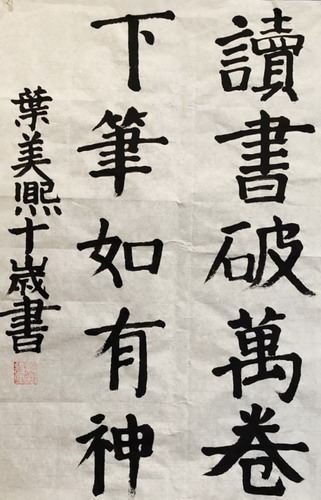 讀書破萬卷
下筆如有神
葉美熙十歲書